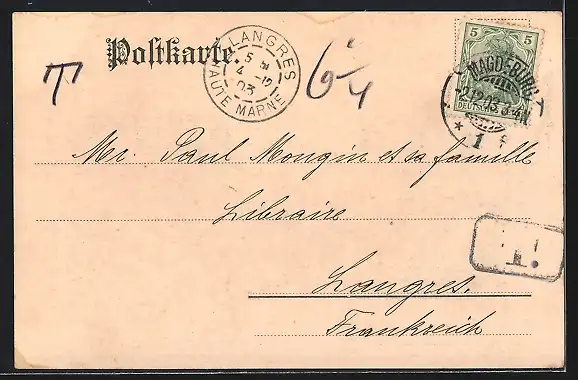 Postkarte.
LANGRES
5 E
4 -12
03
HAUTE MARNE
T
6/4
5 5
MAGDEBURG
DEUTSCHES
* 1
Mr. Paul Mongin et sa famille
Libraire
T.
Langres.
Frankreich